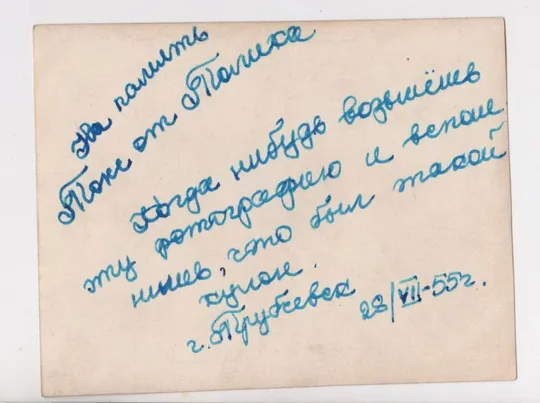 На память
Токе от Толика
Когда нибудь возьмёшь
эту фотографию и вспом
нишь, что был такой
кулак.
г. Трубчевск 28/VII-55г.